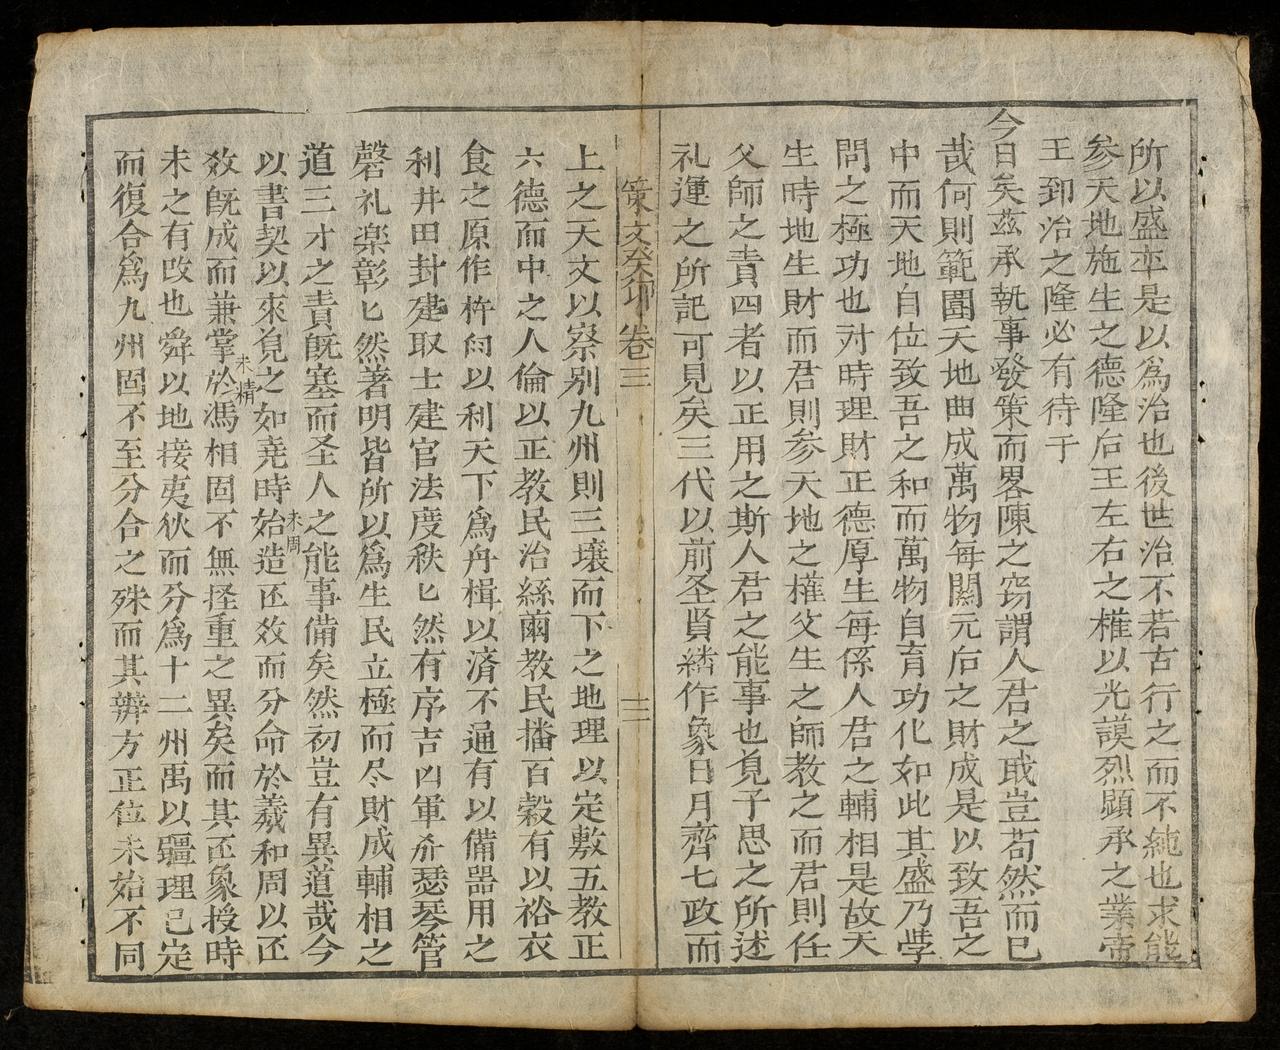 所以盛平是以爲治也後世治不若古行之而不純也求能
参天地施生之德隆后王左右之權以光謨烈顯承之業帝
王卲治之隆必有待于
今日矣茲承執事發策而畧陳之窃謂人君之戢豈苟然而已
哉何則範圍天地曲成萬物每関元后之財成是以致吾之
中而天地自位致吾之和而萬物自育功化如此其盛乃學
問之極功也対時理財正德厚生每係人君之輔相是故天
生時地生財而君則参天地之權父生之師教之而君則任
父師之責四者以正用之斯人君之能事也覓子思之所述
礼運之所記可見矣三代以前圣賢繼作象日月齊七政而
策文 卷三 三
上之天文以察別九州則三壤而下之地理以定敷五教正
六德而中之人倫以正教民治絲繭教民播百穀有以裕衣
食之原作杵臼以利天下爲舟楫以済不通有以備噐用之
利井田封建取士建官法度秩匕然有序吉凶軍
瑟琴管
磬礼楽彰匕然著明皆所以爲生民立極而尽財成輔相之
道三才之責旣塞而圣人之能事備矣然初豈有異道哉今
以書契以來覓之如堯時始未周造 攷而分命於羲和周以
攷旣成而兼掌於未精馮相固不無 重之異矣而其 象授時
未之有改也舜以地接夷狄而分爲十二州禹以疆理已定
而復合爲九州固不至分合之殊而其辨方正位未始不同